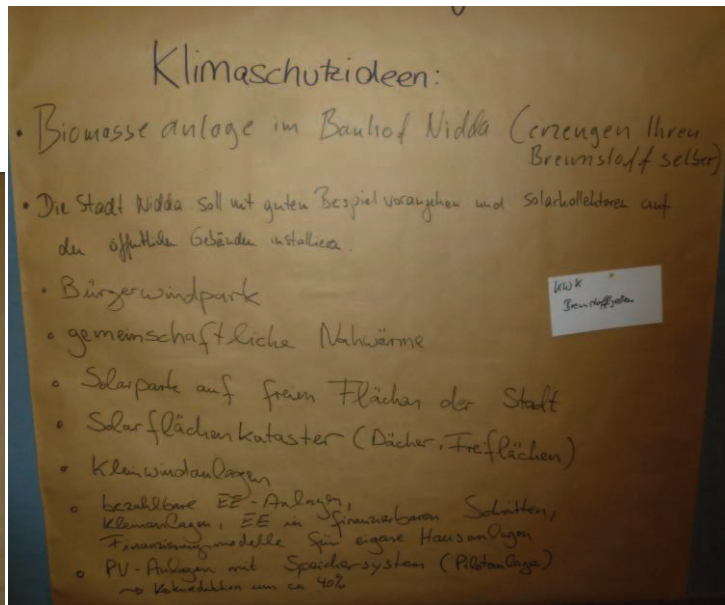 Klimaschutzideen:
• Biomasse anlage im Bauhof Nidda (erzeugen Ihren
Brennstoff selber)
• Die Stadt Nidda soll mit guten Bespiel vorangehen und Solarkollektoren auf
den öffentlichen Gebäuden installieren.
• Bürgerwindpark
KWK
Brennstoffzellen
• gemeinschaftliche Nahwärme
• Solarpark auf freien Flächen der Stadt
• Solarflächenkataster (Dächer, Freiflächen)
• Kleinwindanlagen
• bezahlbare EE-Anlagen,
Kleinanlagen, EE in finanzierbaren Schritten,
Finanzierungsmodelle für eigene Hausanlagen
• PV-Anlagen mit Speichersystem (Pilotanlage)
um ca 40%